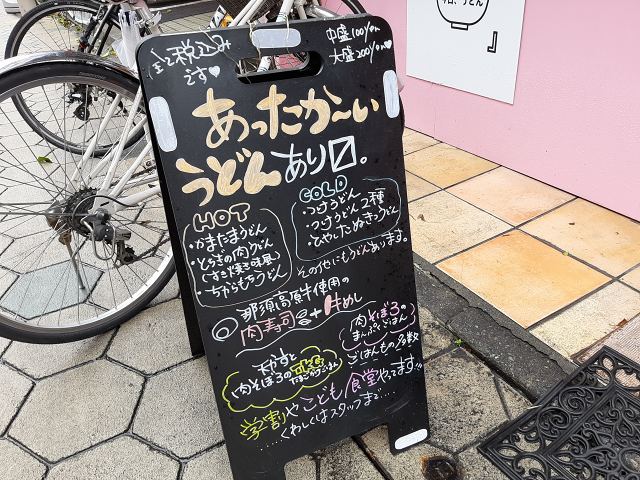 全て税込み
です♡
中盛100yen
大盛200yen♡
あったか〜い
うどんあり〼。
HOT
・かまたまうどん
・とろぎの肉うどん
(すき焼き味風)
・ちからもちうどん
COLD
・つけうどん
・つけうどん2種
・ひやしたぬきうどん
その他にもうどんあります。
◎那須高原牛使用の
肉寿司 + 牛めし
肉そぼろの
まんぷくごはん
ごはんもの多数
肉そぼろの
学割やこども食堂やってます!!
……くわしくはスタッフまで……
今日、うどん
』